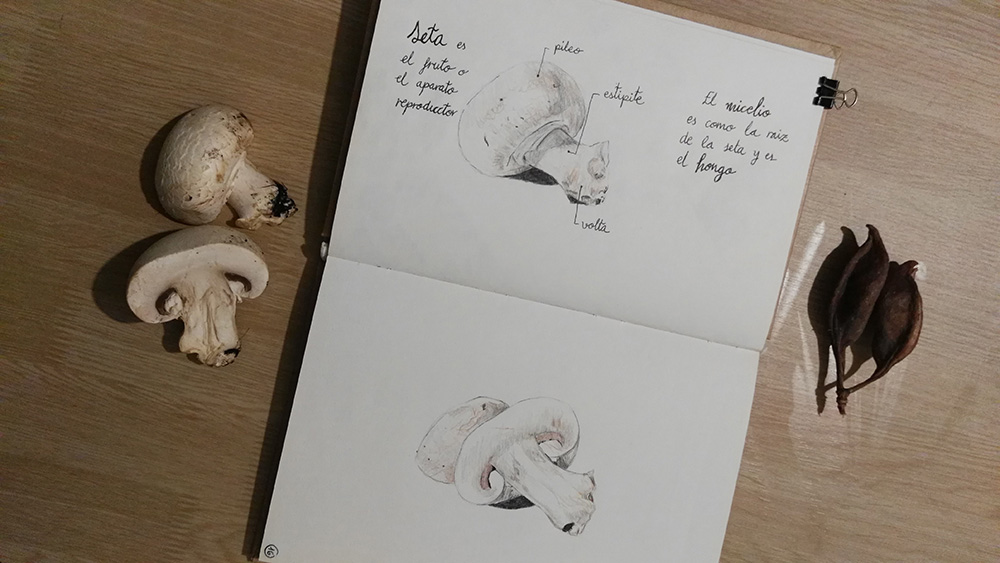 Seta es
el fruto o
el aparato
reproductor
pileo
estipite
volta
El micelio
es como la raiz
de la seta y es
el hongo